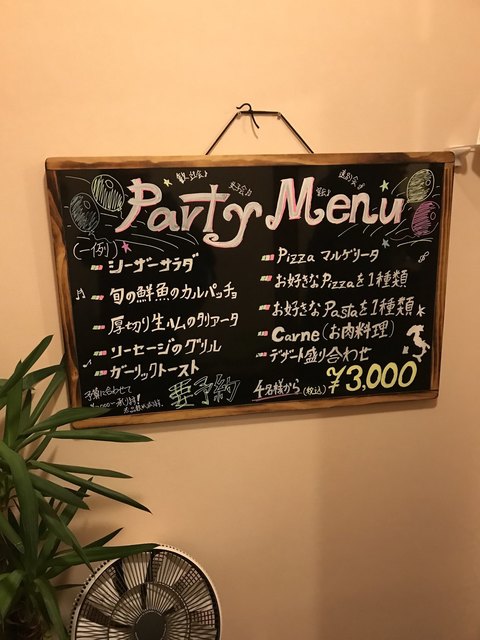 歓迎会♪ 女子会♫ 送別会♬
Party Menu
(一例)
シーザーサラダ
旬の鮮魚のカルパッチョ
厚切り生ハムのタリアータ
ソーセージのグリル
ガーリックトースト
Pizza マルゲリータ
お好きなPizzaを1種類
お好きなPastaを1種類
Carne (お肉料理)
デザート盛り合わせ
予算に合わせて
要予約
4名様から (税込) ¥3.000